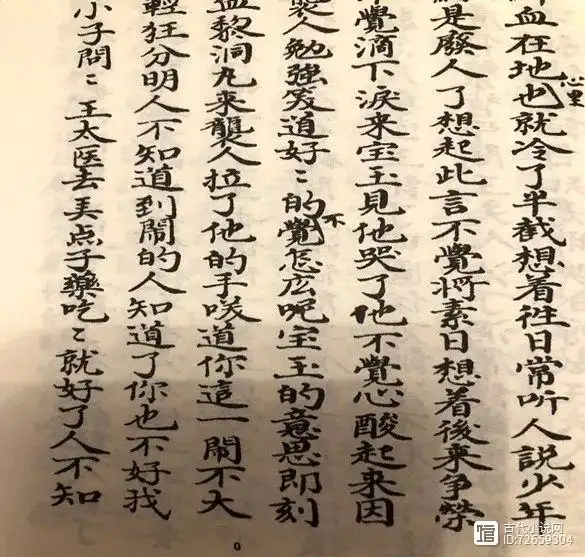 血在地也心里就冷了半截想着往日常听人説少年
是廢人了想起此言不覺將素日想着後来争榮
覺滴下淚来宝玉見他哭了他不覺心酸起来因
襲人勉強笑道好〻的不覺怎庅呢宝玉的意思即刻
血黎洞九来襲人拉了他的手咲道你這一閙不大
輕狂分明人不知道到閙的人知道了你也不好我
小子問〻王太医去弄点子藥吃〻就好了人不知
古代小说网
ID:72659304